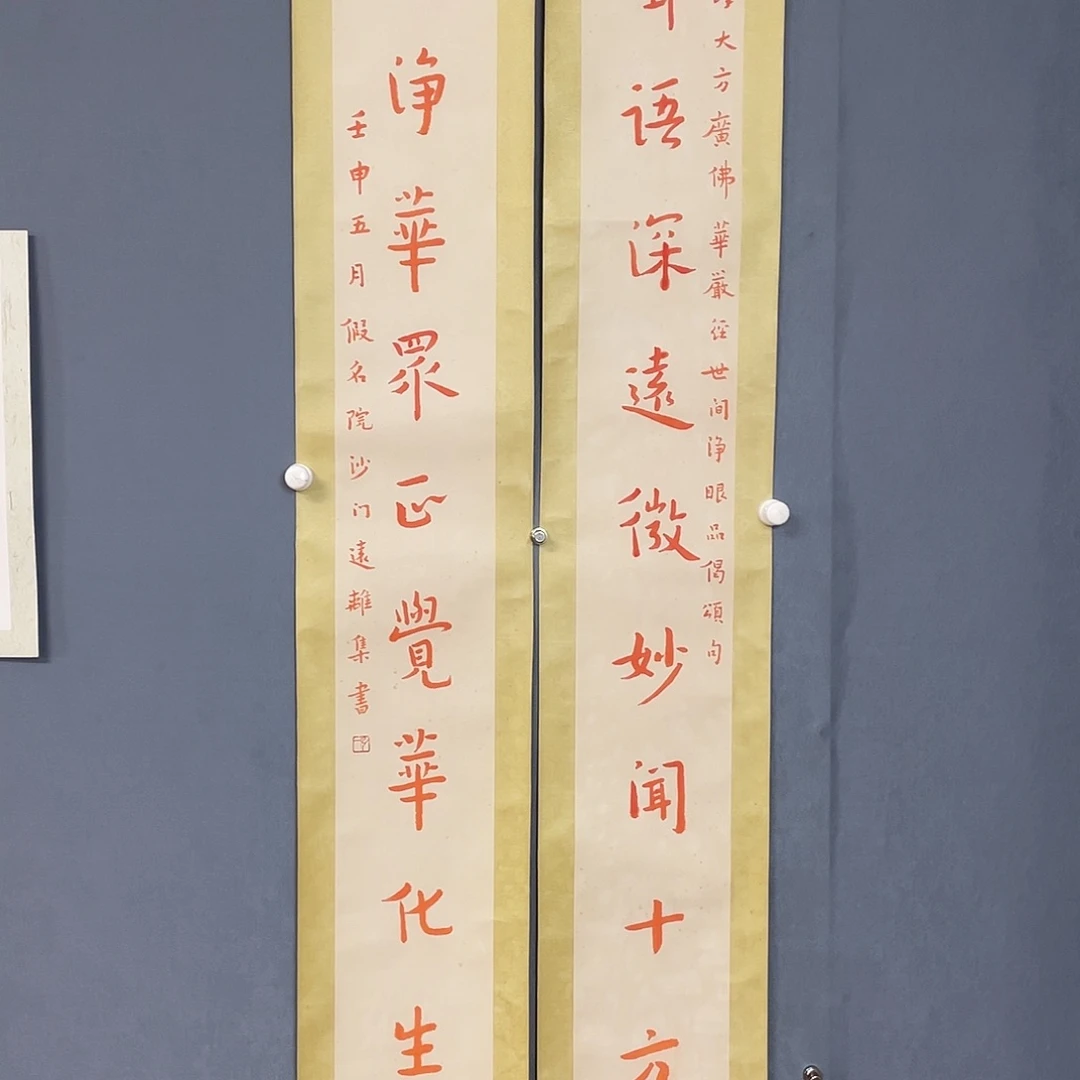 大方廣佛華嚴經世間淨眼品偈頌句
語深遠微妙闻十方
淨華眾正覺華化生
壬申五月假名院沙门遠離集書